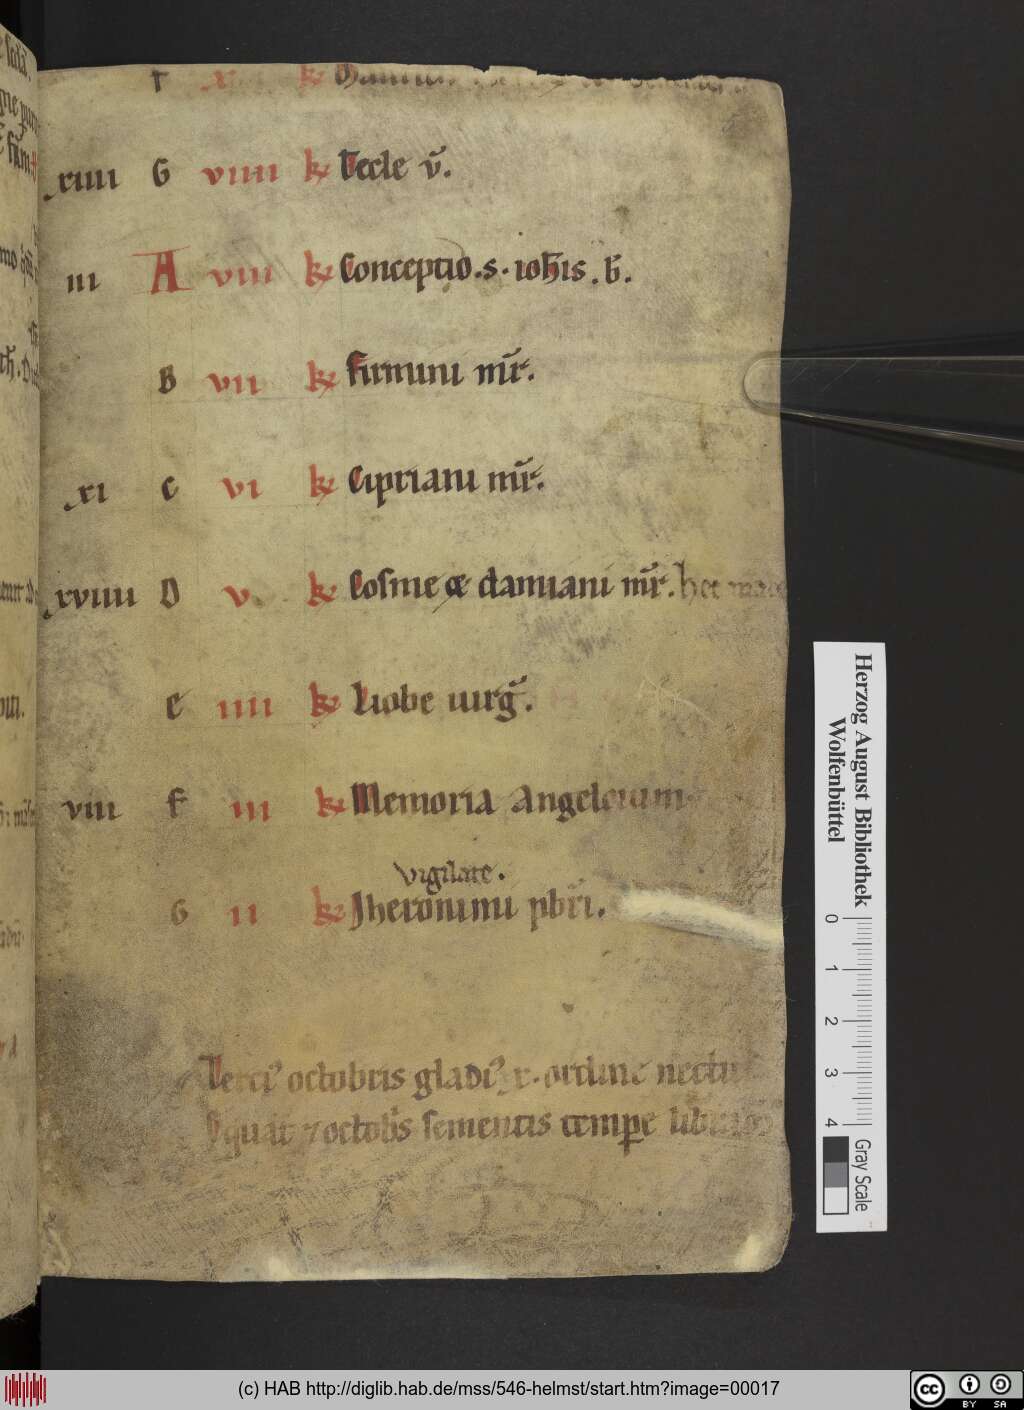 xiiii G viiii kł Tecle v̄.
iii A viii kł Conceptio.s.ioħis.b̄.
B vii kł firmini mr̄.
xi c vi kł Cipriani mr̄.
xviiii D v kł Cosme & damiani mr̄. hec
e iiii kł Liobe uirḡ.
viii f iii kł Memoria Angelorum
vigilate.
G ii kł Jheronimi pbr̄i.
octobris gladi' x. ordine
quat 7 octob's sementis tempe
Herzog August Bibliothek
Wolfenbüttel
0 1 2 3 4
Gray Scale
(c) HAB http://diglib.hab.de/mss/546-helmst/start.htm?image=00017
cc BY SA